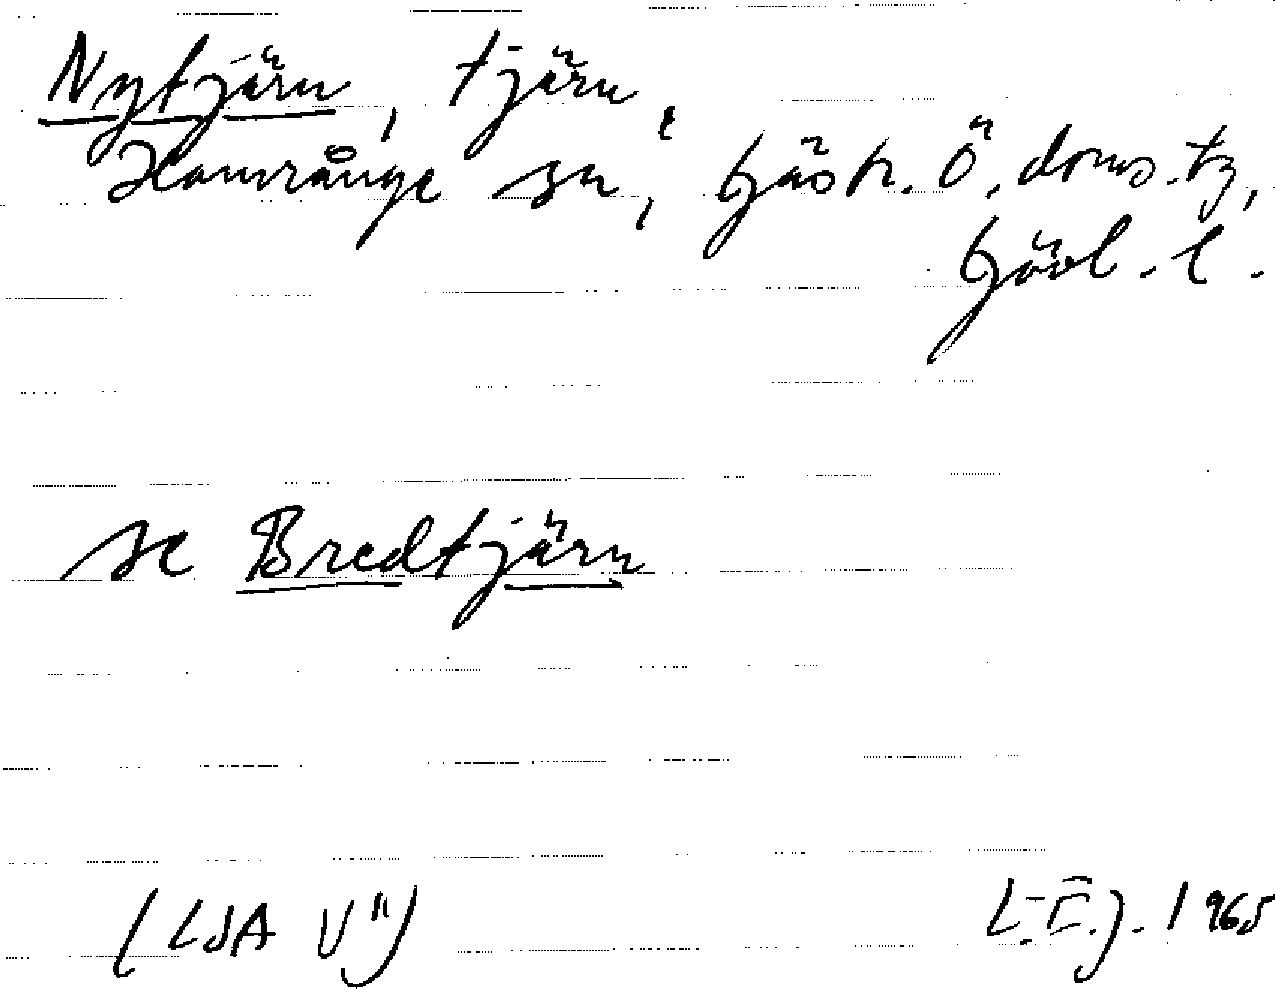 Nytjärn, tjärn,
Hamrånge sn, Gästr. Ö. doms.tg,
Gävl. l.
se Bredtjärn
(LSA V")
L.E.J. 1965